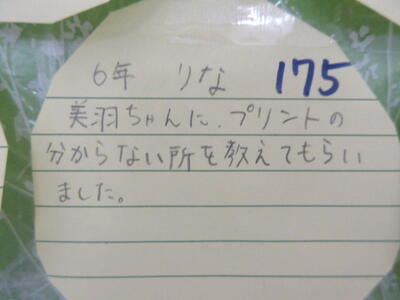 6年 りな 175
美羽ちゃんに、プリントの
分からない所を教えてもらい
ました。